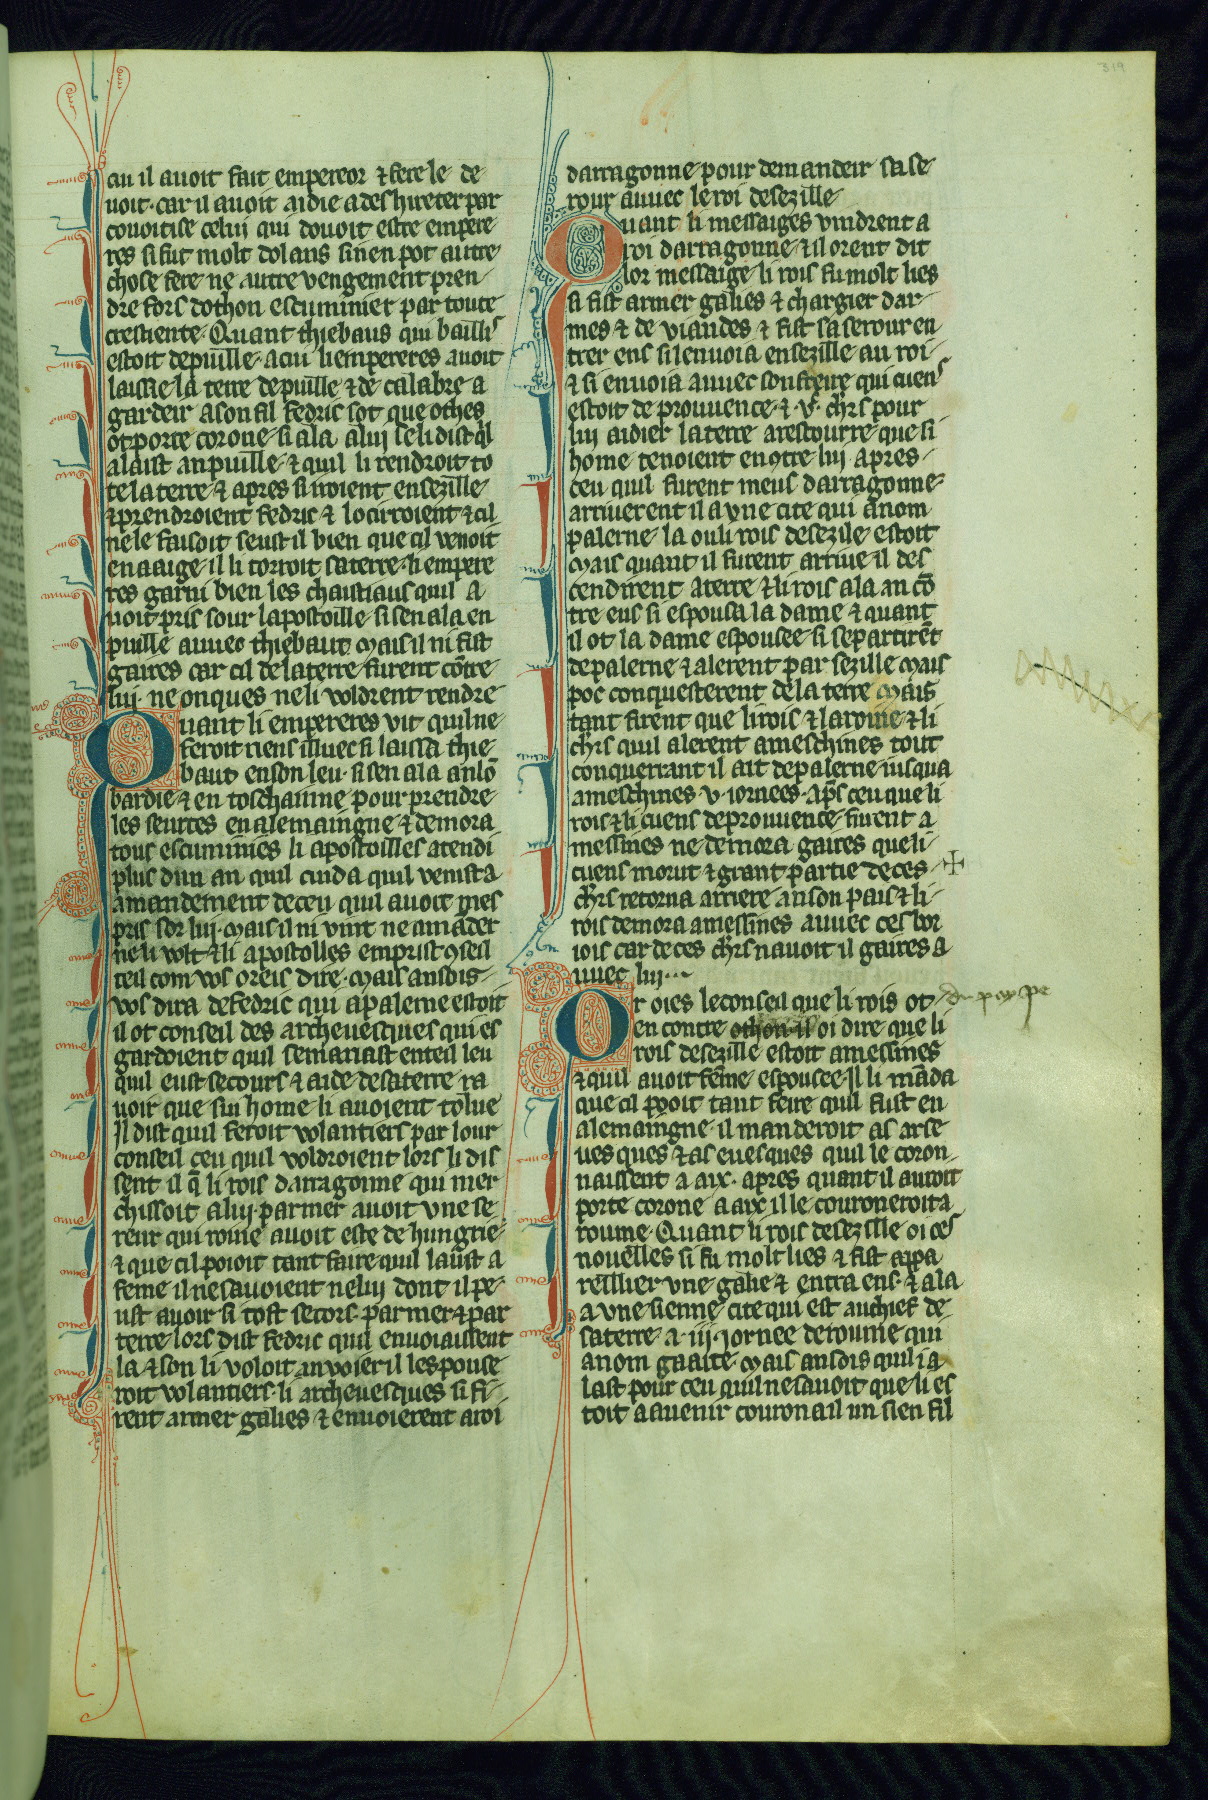 319
au il auoit fait empereor ⁊ fere le de
uoit. car il auoit aidie a des hireter par
couoitise celui qui douoit estre empere
res si fut molt dolans sinen pot autre
chose fere ne autre vengement pren-
dre fors dothon escuminier par toute
crestiente. Quant thiebaus qui baillis
estoit depuille. acui li empereres auoit
laissie la terre depuille ⁊ de calabre a
gardeir ason fil fedric sot que othes
ot porte corone. si ala alui se li dist ql
alaist an puille. ⁊ quil li rendroit to
te la terre. ⁊ apres si iroient ensezille
⁊ prendroient fedric ⁊ locirroient ⁊ cil
ne le faisoit seust il bien que cil venoit
en aaige. il li torroit sa terre. li empere
res garni bien les chastiaus quil a
uoit pris sour lapostoille. si sen ala en
puille auuec thiebaut mais il ni fist
gaires car cil de la terre furent cōtre
lui. ne onques ne li voldrent rendre
Quant li empereres vit quil ne
feroit riens illuec si laissa thie
baut en son leu. si sen ala anlō
bardie ⁊ en toschainne pour prendre
les seurtes en alemaingne ⁊ demora
tous escuminies li apostoilles atendi
plus dun an quil cuida quil venist a
amandement de ceu quil auoit mes
pris sor lui. mais il ni vint ne amāder
ne li volt ⁊ li apostolles emprist ꝯseil
teil com vos oreis dire. Mais ansdis
vos dira de fedric qui a palerne estoit
il ot conseil des archeuesques qui es
gardoient quil semariast enteil leu
quil eust secours ⁊ aide de sa terre ra
uoir que sui home li auoient tolue
Il dist quil feroit volantiers par lour
conseil ceu quil voldroient lors li dis
sent il q̄ li rois darragonne qui mer
chissoit a lui. par mer auoit vne se
reur qui roine auoit este de hungrie.
⁊ que cil pooit tant faire quil laust a
feme il ne sauoient nelui dont il pe
ust auoir si tost secors. par mer ⁊ par
terre. lors dist fedric quil enuoiaissent
la ⁊ son li voloit anuoier il lespouse
roit volantiers. li archeuesques si fi-
rent armer galies ⁊ enuoierent au roi
darragonne pour demandeir sa se
rour auuec le roi desezille
Quant li messaiges vindrent a
roi darragonne. ⁊ il orent dit
lor messaige. li rois fu molt lies
si fist armer galies ⁊ chargier dar-
mes ⁊ de viandes ⁊ fist sa serour en
trer ens si lenuoia ensezille au roi
⁊ si enuoia auuec son freire qui cuens
estoit de prouuence. ⁊ v. chrs pour
lui aidier la terre a rescourre que si
home tenoient encontre lui. apres
ceu quil furent meus darragonne
arriuerent il a vne cite qui a nom
palerne. la ou li rois desezile estoit
Mais quant il furent arriue il des
cendirent a terre ⁊ li rois ala an cō
tre eus si espousa la dame ⁊ quant
il ot la dame espousee. si se partirēt
depalerne ⁊ alerent par sezille mais
poc conquesterent de la terre mais
tant firent que li rois ⁊ la roine ⁊ li
chrs quil alerent ameschines tout
conquerrant il ait depalerne iusqua
ameschines .v. iornees. aps ceu que li
rois ⁊ li cuens deprouuence furent a
messines ne demora gaires que li
cuens morut ⁊ grant partie de ces
chrs retorna arriere an son pais ⁊ li
rois demora amessines auuec ces bor
iois car de ces chrs nauoit il gaires a
uuec lui...
Or oies le conseil que li rois ot du paype
en contre othon. il oi dire que li
rois desezille estoit amessines
⁊ quil auoit feme espousee. Il li māda
que cil pooit tant feire quil fust en
alemaingne. il manderoit as arse
ues ques ⁊ as euesques quil le coron
naissent a aix. apres quant il auroit
porte corone a aix il le couroneroit a
roume. Quant li rois desezille oi ces
nouelles si fu molt lies ⁊ fist appa
reillier vne galie ⁊ entra ens. ⁊ ala
a vne sienne cite qui est auchief de
sa terre. a .iij. iornee de roume qui
a nom gaaite. Mais ansdis quil ia
last pour ceu quil ne sauoit que li es
toit a auenir courona il un sien fil